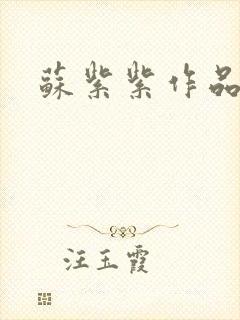 蘇紫紫作品
汪玉霞